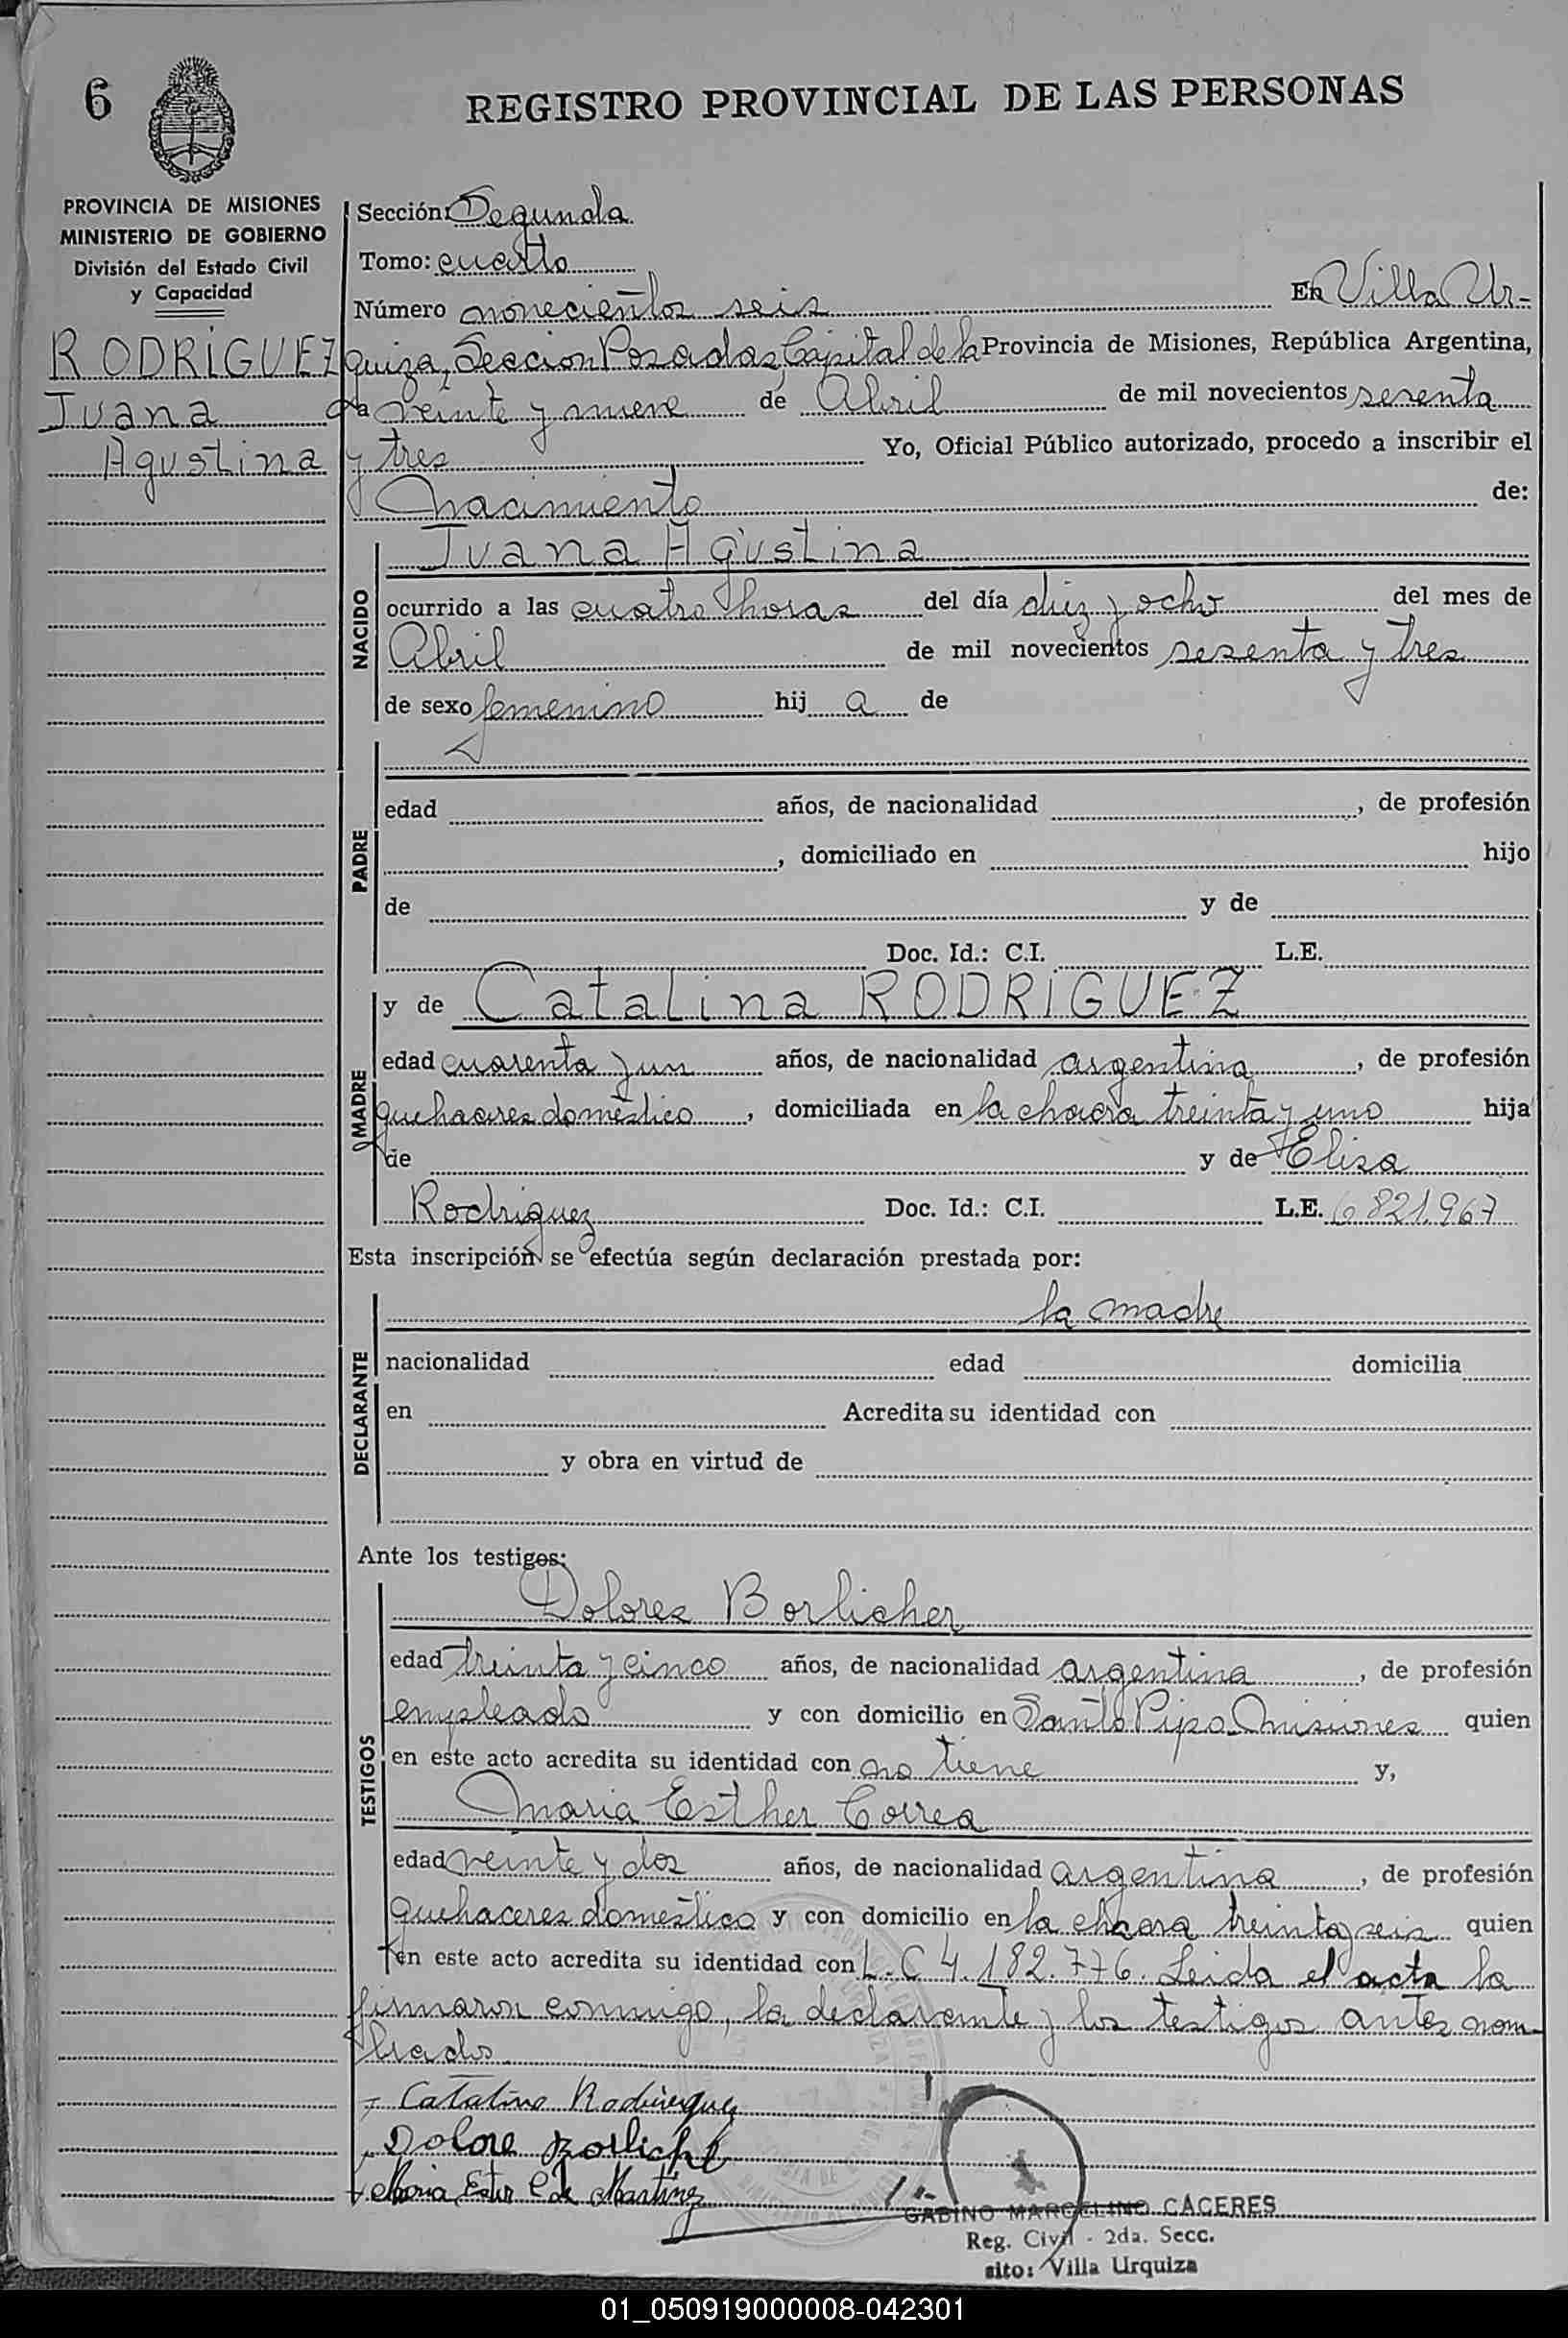 6
REGISTRO PROVINCIAL DE LAS PERSONAS
PROVINCIA DE MISIONES
MINISTERIO DE GOBIERNO
División del Estado Civil
y Capacidad
RODRIGUEZ
Juana
Agustina
Sección: Segunda
Tomo: cuarto
Número novecientos seis En Villa Ur-
quiza, Seccion Posadas, Capital de la Provincia de Misiones, República Argentina,
a veinte y nueve de Abril de mil novecientos sesenta
y tres Yo, Oficial Público autorizado, procedo a inscribir el
Nacimiento de:
NACIDO
Juana Agustina
ocurrido a las cuatro horas del día diez y ocho del mes de
Abril de mil novecientos sesenta y tres
de sexo femenino hij a de
PADRE
edad años, de nacionalidad , de profesión
, domiciliado en hijo
de y de
Doc. Id.: C.I. L.E.
MADRE
y de Catalina RODRIGUEZ
edad cuarenta y un años, de nacionalidad argentina , de profesión
quehaceres doméstico , domiciliada en la chacra treinta y uno hija
de y de Elisa
Rodriguez Doc. Id.: C.I. L.E. 6821.967
Esta inscripción se efectúa según declaración prestada por:
DECLARANTE
la madre
nacionalidad edad domicilia
en Acredita su identidad con
y obra en virtud de
Ante los testigos:
TESTIGOS
Dolores Borlicher
edad treinta y cinco años, de nacionalidad argentina , de profesión
empleado y con domicilio en Santo Pipo Misiones quien
en este acto acredita su identidad con no tiene y,
Maria Esther Correa
edad veinte y dos años, de nacionalidad argentina , de profesión
quehaceres domestico y con domicilio en la chacra treinta y seis quien
en este acto acredita su identidad con L.C 4.182.776. Leida el acta la
firmaron conmigo, la declarante y los testigos antes nom-
brados
Catalina Rodriguez
Dolore Borliche
Maria Ester C de Martinez
GABINO MARCELINO CACERES
Reg. Civil - 2da. Secc.
sito: Villa Urquiza
01_050919000008-042301